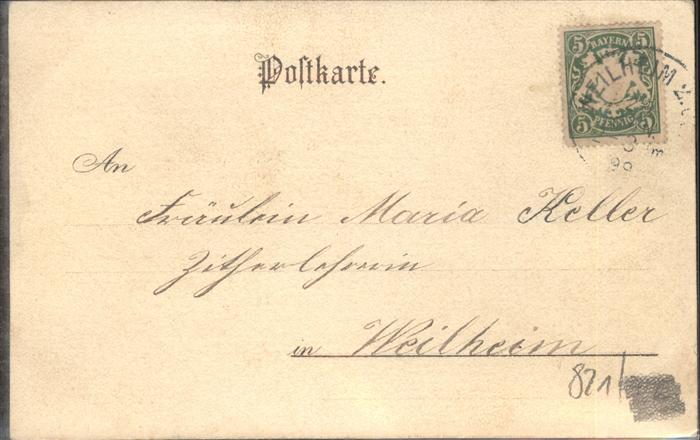 Postkarte.
5 BAYERN 5
5 PFENNIG 5
WEILHEIM 2.
An
Fräulein Maria Keller
Zitherlehrerin
in Weilheim
821/